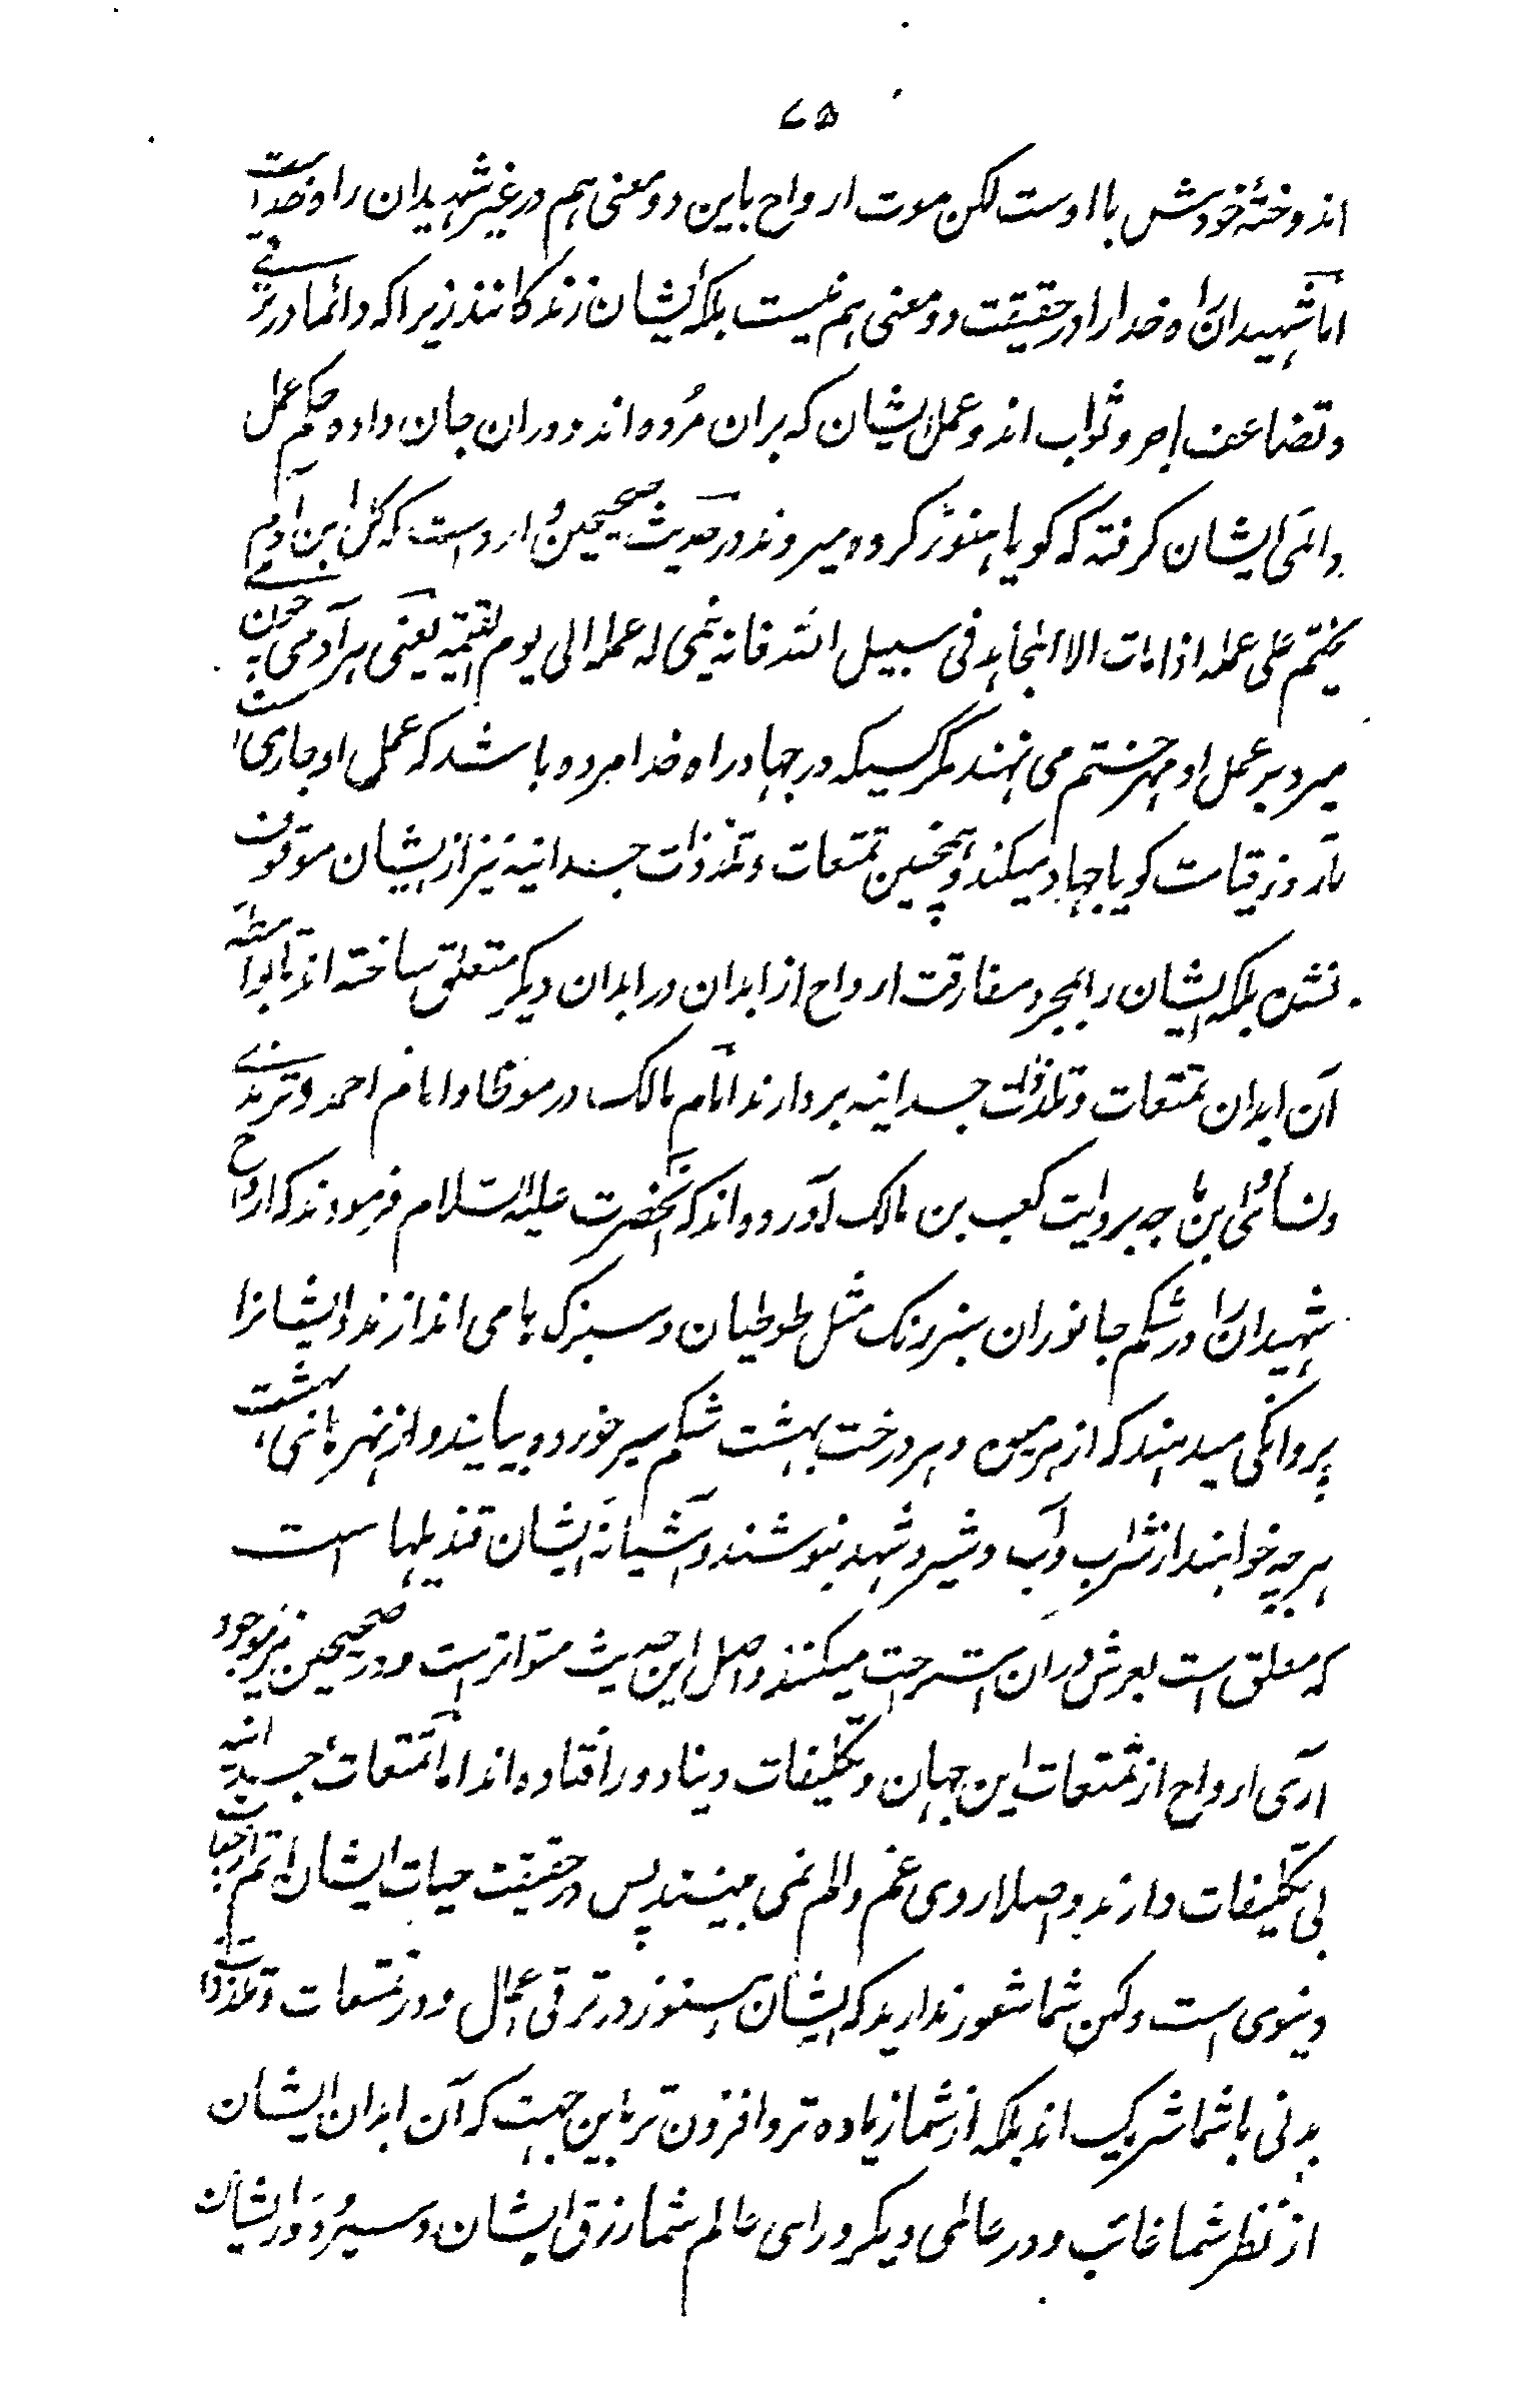 ۷۵
اندوختۀ خودش با اوست لکن موت ارواح باین دو معنی هم در غیر شهیدان راه خداست
اما شهیدان راه خدا را در حقیقت دو معنی هم نیست بلکه ایشان زندگانند زیراکه دائما در ترقی
و تضاعف اجر و ثواب اند و عمل ایشان که بران مرده اند و دران جان داده حکم عمل
دائمی ایشان گرفته که گویا هنوز کرده میروند در حدیث صحیحین وارد است که کل ابن آدم
یختم علی عمله اذا مات الا المجاهد فی سبیل الله فانه ینمی له عمله الی یوم القیمة یعنی هر آدمی چون
میرد بر عمل او مهر ختم می نهند مگر کسیکه در جهاد راه خدا مرده باشد که عمل او جاری است
تا روز قیامت گویا جهاد میکند و همچنین تمتعات و تلذذات جسدانیه نیز از ایشان موقوف
نشده بلکه ایشان را بمجرد مفارقت ارواح از ابدان در ابدان دیگر متعلق ساخته اند تا بواسطه
آن ابدان تمتعات و تلذذات جسدانیه بردارند امام مالک در موطا و امام احمد و ترمذی
و نسائی و ابن ماجه بروایت کعب بن مالک آورده اند که آنحضرت علیه السلام فرمودند که ارواح
شهیدان را در شکم جانوران سبز رنگ مثل طوطیان و سبزک یا می اندازند و ایشانرا
پروانگی میدهند که از هر میوه و هر درخت بهشت شکم سیر خورده بیایند و از نهرهای بهشت
هر چه خواهند از شراب و آب و شیر و شهد بنوشند و آشیانۀ ایشان قندیلها است
که معلق است بعرش دران استراحت میکنند و اصل این حدیث متواتر است و در صحیحین نیز موجود
آری ارواح از تمتعات این جهان و تکلیفات دینا دور افتاده اند اما تمتعات جسدانیه
بی تکلیفات دارند و اصلا روی غم و الم نمی بینند پس در حقیقت حیات ایشان اتم از حیات
دنیوی است ولکن شما شعور ندارید که ایشان هنوز در ترقی اعمال و در تمتعات و تلذذات
بدنی با شما شریک اند بلکه از شما زیاده تر و افزون تر باین جهت که آن ابدان ایشان
از نظر شما غائب و در عالمی دیگر ورای عالم شما رزق ایشان و سیر و دور ایشان